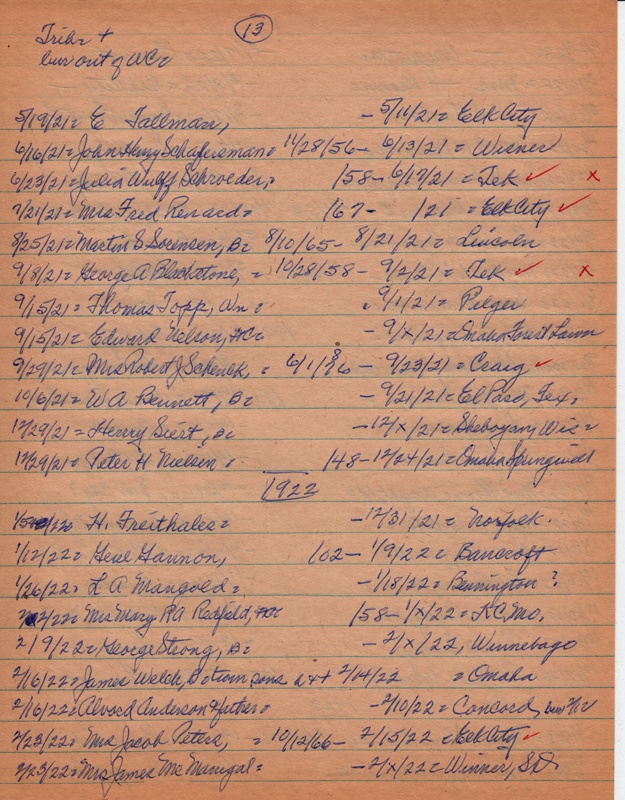 13
Trib +
bur out of WC =
5/19/21 = E Tallman, - 5/14/21 = Elk City
6/16/21 = John Henry Schafersman = 11/28/56 - 6/13/21 = Wisner
6/23/21 = Julia Wulff Schroeder, = /58 - 6/17/21 = Tek ✓ x
7/21/21 = Mrs Fred Renard = /67 - /21 = Elk City ✓
8/25/21 = Martin S Sorensen, B = 8/10/65 - 8/21/21 = Lincoln
9/8/21 = George A = 10/28/58 - 9/2/21 = Tek ✓ x
9/15/21 = Thomas Topp, Wn = 9/1/21 = Pilger
9/15/21 = Edward Nelson, - 9/x/21 = Omaha Forest Lawn
9/29/21 = Mrs Robert J Schenck = 6/1/ - 9/23/21 = Craig ✓
10/6/21 = W A Bennett, B = - 9/21/21 = El Paso, Tex.
12/29/21 = Henry Siert, B = - 12/x/21 = Sheboygan, Wis =
12/29/21 = Peter H Nielsen = /48 - 12/24/21 = Omaha Springwell
1922
/22 = H. Freithales = - 12/31/21 = Norfolk.
1/12/22 = Gene Gannon, /02 - 1/9/22 = Bancroft
1/26/22 = L. A. Mangold = - 1/18/22 = Bennington ?
2/22 = Mrs Mary RA Redfeld, /58 - 1/x/22 = K.C. Mo.
2/9/22 = George Strong, B = - 2/x/22, Winnebago
2/16/22 = James Welch, B = twin sons 2/14/22 = Omaha
2/16/22 = Alvord Anderson = - 2/10/22 = Concord, bur 2/12
2/23/22 = Mrs Jacob Peters, = 10/12/66 - 2/15/22 = Elk City ✓
2/23/22 = Mrs James Mc Manigal = - 2/x/22 = Winner, S.D.